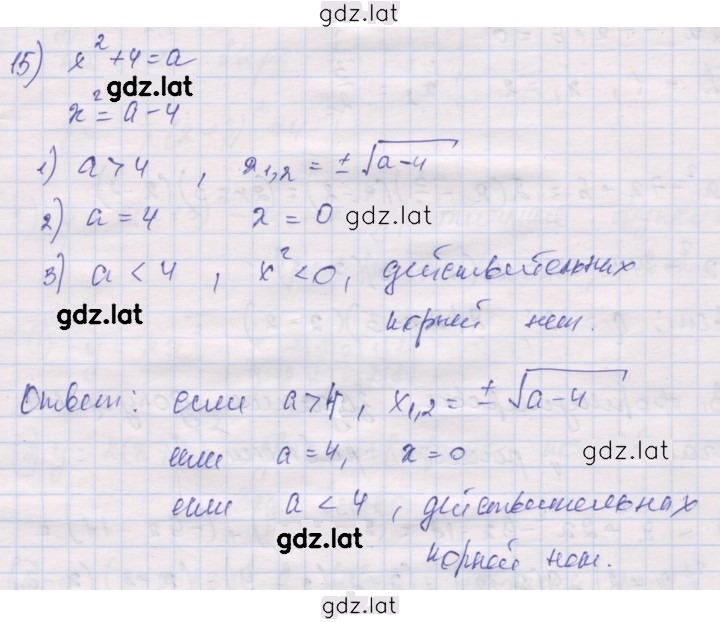 gdz.lat
15) x² + 4 = a
gdz.lat
x² = a - 4
1) a > 4 , x₁,₂ = ± √a-4
2) a = 4 x = 0 gdz.lat
3) a < 4 , x² < 0, действительных
gdz.lat
корней нет.
Ответ: если a > 4, x₁,₂ = ± √a-4
если a = 4, x = 0 gdz.lat
если a < 4 , действительных
gdz.lat корней нет.
gdz.lat